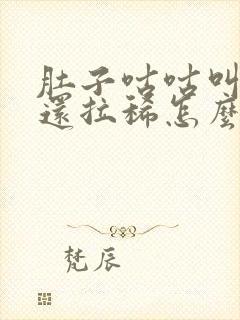 肚子咕咕叫
還拉稀怎麼
梵辰